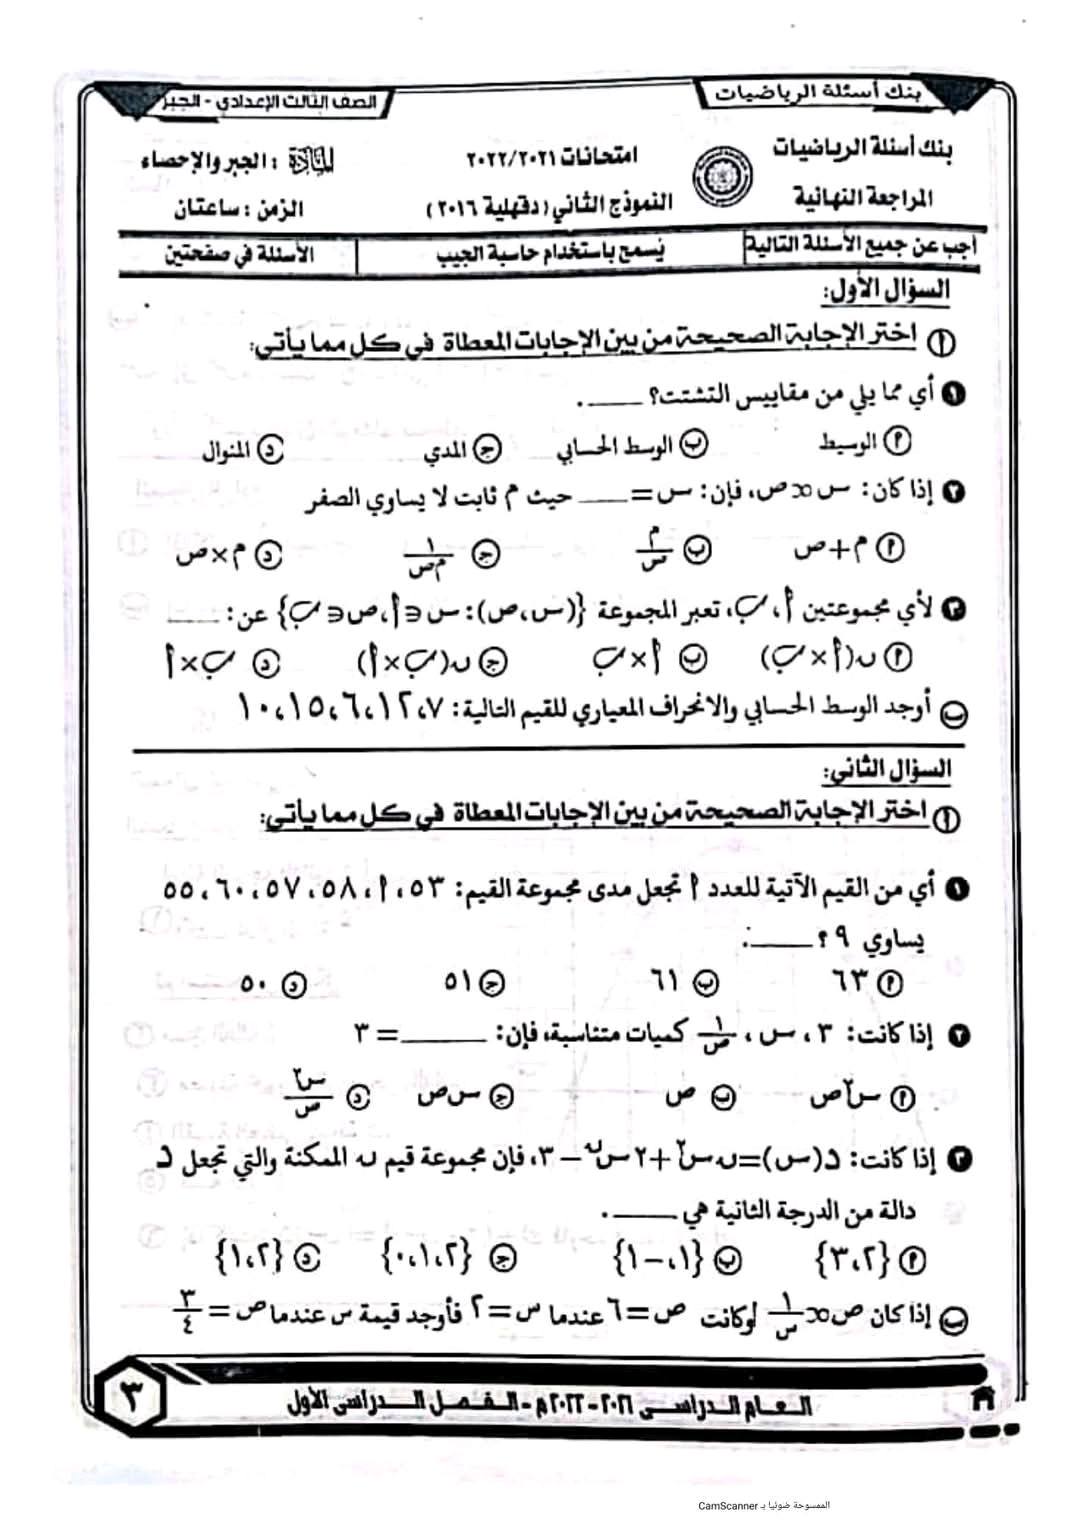 بنك أسئلة الرياضيات
الصف الثالث الإعدادي - الجبر
بنك أسئلة الرياضيات
امتحانات ٢٠٢٢/٢٠٢١
المادة : الجبر والإحصاء
المراجعة النهائية
النموذج الثاني (دقهلية ٢٠١٦)
الزمن : ساعتان
أجب عن جميع الأسئلة التالية
يُسمح باستخدام حاسبة الجيب
الأسئلة في صفحتين
السؤال الأول:
أ اختر الإجابة الصحيحة من بين الإجابات المعطاة في كل مما يأتي:
١ أي مما يلي من مقاييس التشتت؟ ____ .
أ الوسيط ب الوسط الحسابي ج المدي د المنوال
٢ إذا كان: س ∝ ص، فإن: س = ____ حيث م ثابت لا يساوي الصفر
أ م + ص ب م/س ج ١/م ص د م × ص
٣ لأي مجموعتين أ، ب، تعبر المجموعة {(س، ص): س ∈ أ، ص ∈ ب} عن: ____
أ ن(أ × ب) ب أ × ب ج ن(ب × أ) د ب × أ
ب أوجد الوسط الحسابي والانحراف المعياري للقيم التالية: ٧، ١٢، ٦، ١٥، ١٠
السؤال الثاني:
أ اختر الإجابة الصحيحة من بين الإجابات المعطاة في كل مما يأتي:
١ أي من القيم الآتية للعدد أ تجعل مدى مجموعة القيم: ٥٣، أ، ٥٨، ٥٧، ٦٠، ٥٥
يساوي ٩ ؟ ____.
أ ٦٣ ب ٦١ ج ٥١ د ٥٠
٢ إذا كانت: ٣ ، س ، ١/ص كميات متناسبة، فإن: ____ = ٣
أ س٢ ص ب ص ج س ص د س٢/ص
٣ إذا كانت: د(س) = ن س٢ + ٢ س^ن − ٣، فإن مجموعة قيم ن الممكنة والتي تجعل د
دالة من الدرجة الثانية هي ____ .
أ {٣،٢} ب {١،−١} ج {٠،١،٢} د {١،٢}
ب إذا كان ص ∝ ١/س وكانت ص = ٦ عندما س = ٢ فأوجد قيمة س عندما ص = ٣/٤
العام الدراسى ٢٠٢١ - ٢٠٢٢م - الفصل الدراسى الأول
٣
الممسوحة ضوئيا بـ CamScanner